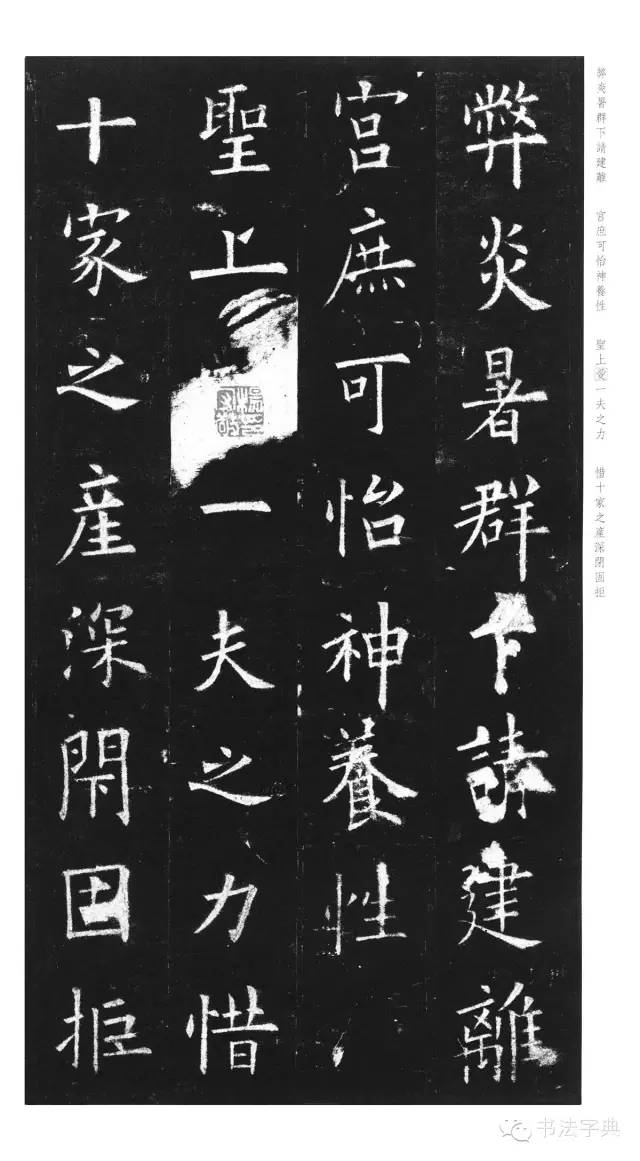 弊炎暑群下請建離
宮庶可怡神養性
聖上一夫之力惜
十家之産深閇固拒
弊炎暑群下請建離 宮庶可怡神養性 聖上愛一夫之力 惜十家之産深閇固拒
书法字典